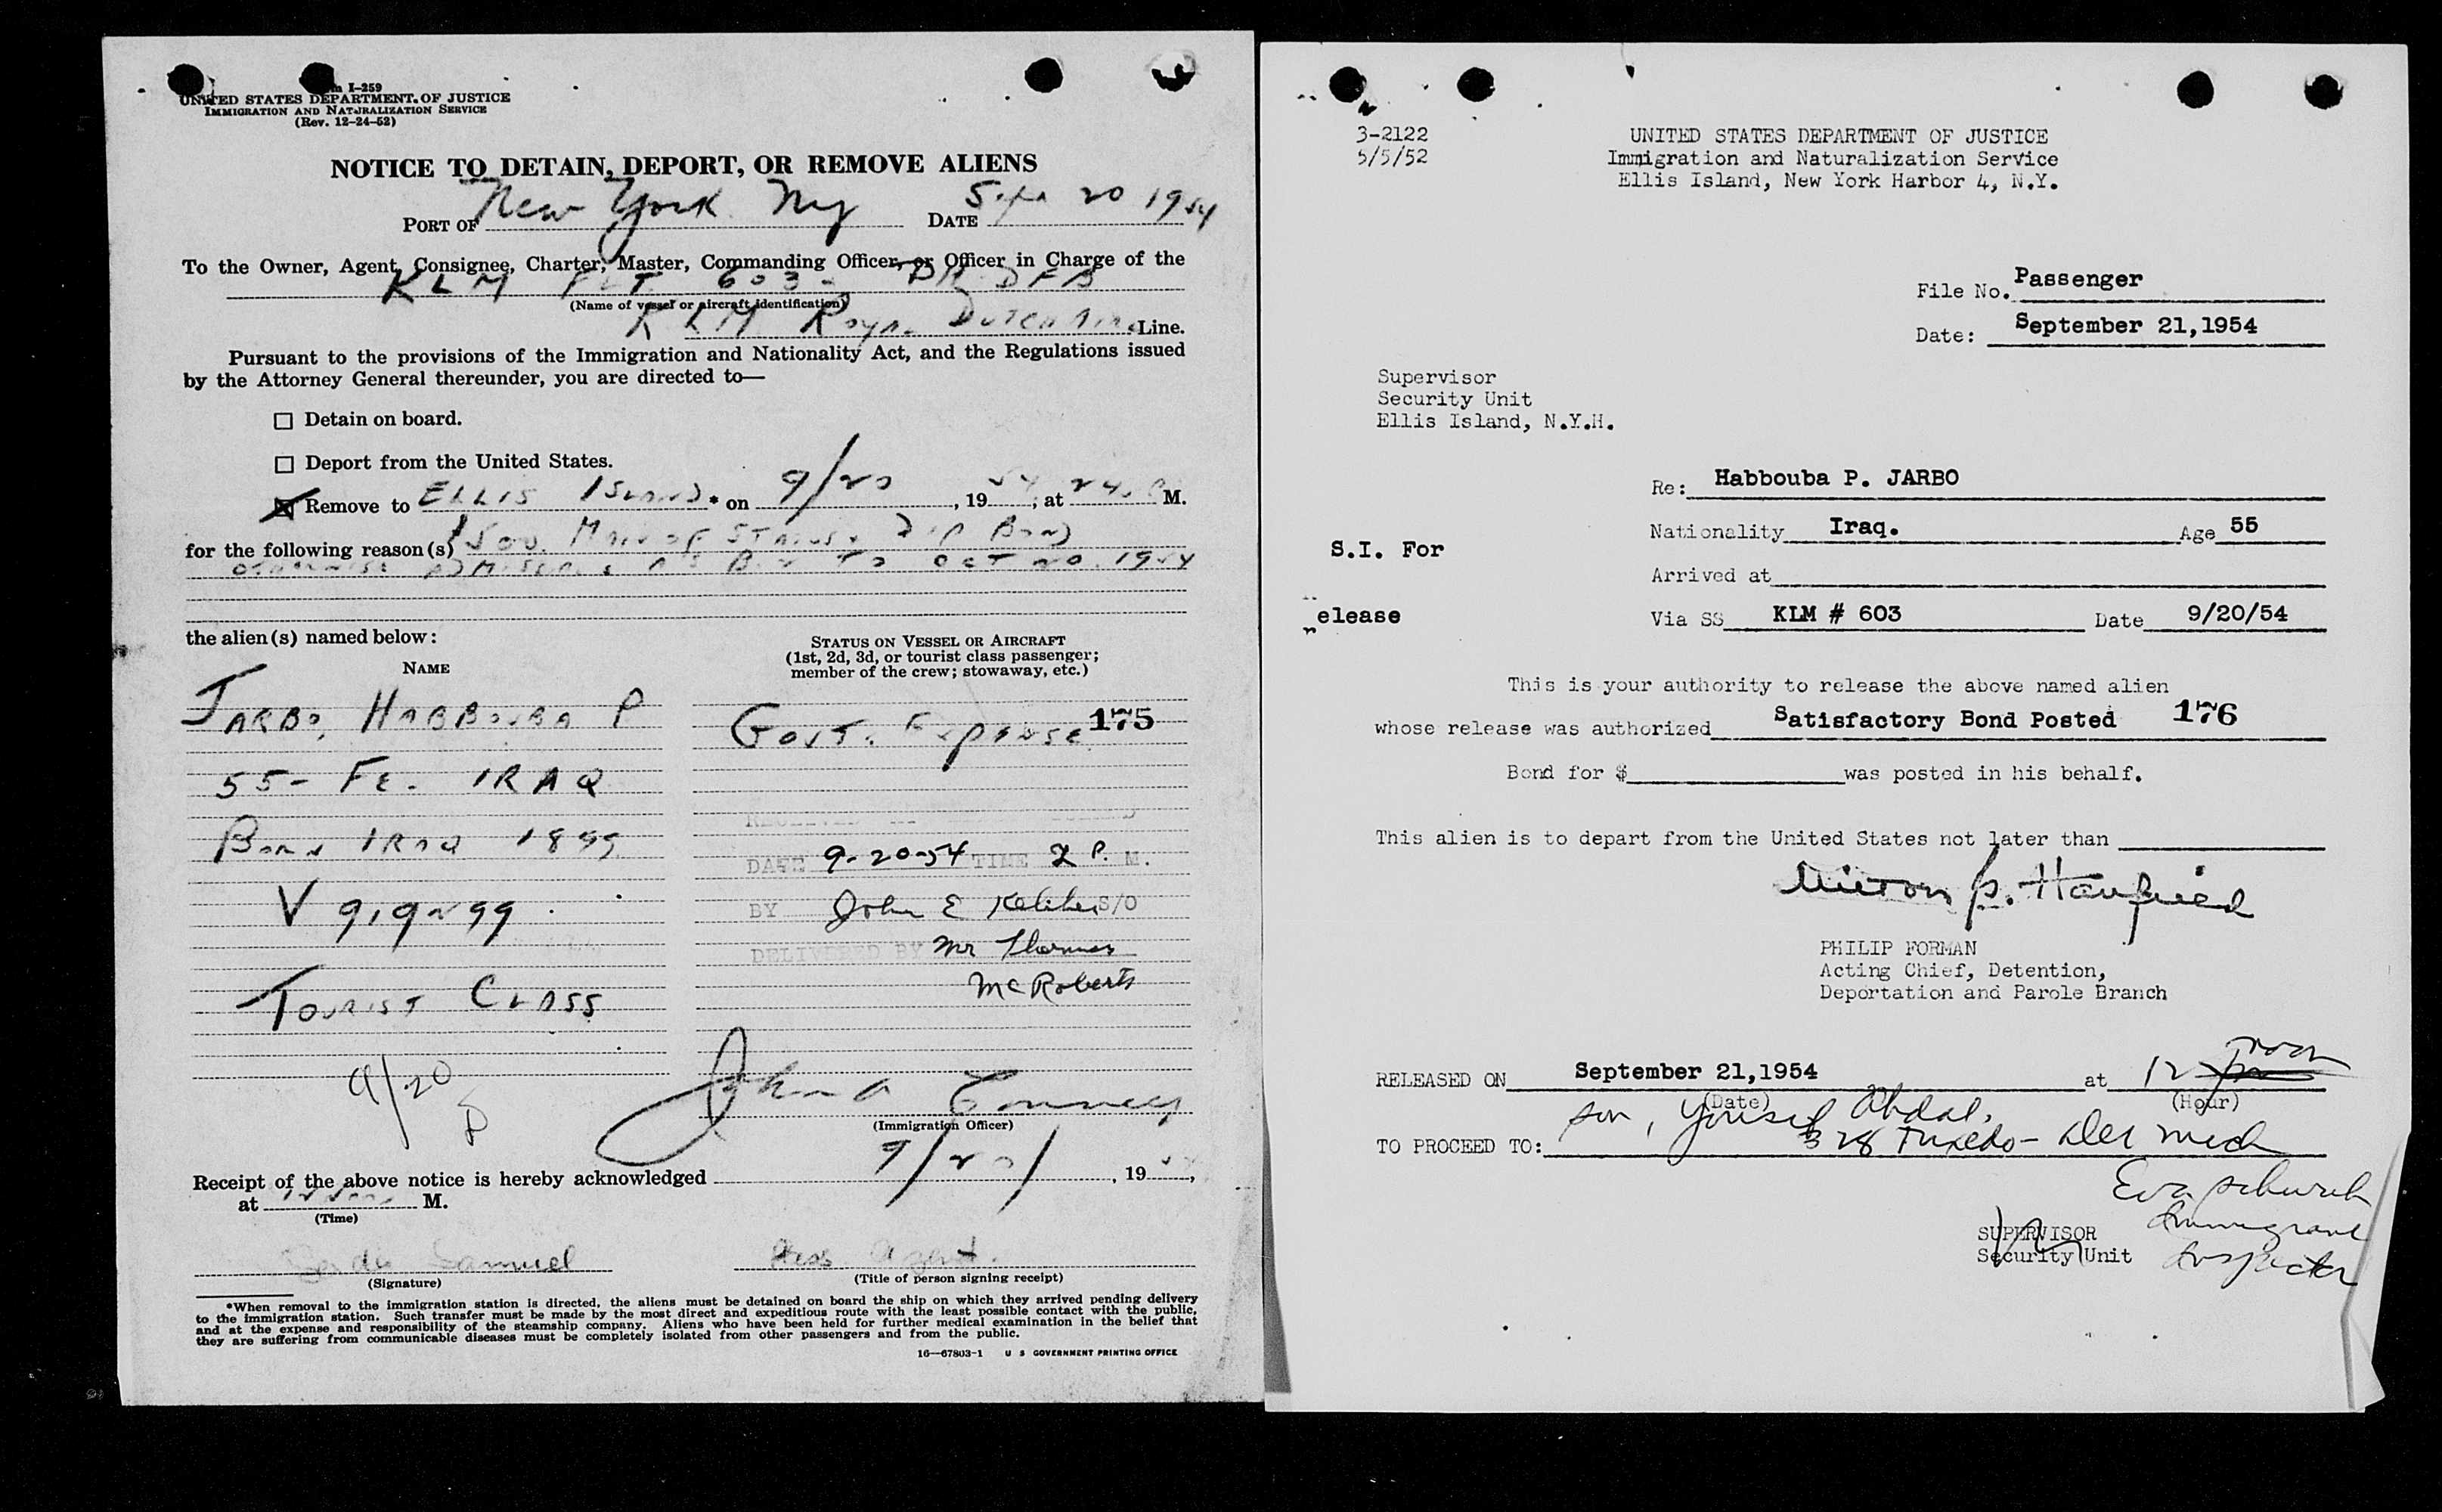 I-259
UNITED STATES DEPARTMENT OF JUSTICE
IMMIGRATION AND NATURALIZATION SERVICE
(Rev. 12-24-52)
NOTICE TO DETAIN, DEPORT, OR REMOVE ALIENS
PORT OF New York Ny DATE Sept 20 1954
To the Owner, Agent, Consignee, Charter, Master, Commanding Officer, or Officer in Charge of the
KLM FLT 603 - PH DFB
(Name of vessel or aircraft identification)
KLM Royal Dutch Air Line.
Pursuant to the provisions of the Immigration and Nationality Act, and the Regulations issued
by the Attorney General thereunder, you are directed to—
☐ Detain on board.
☐ Deport from the United States.
☒ Remove to ELLIS ISLAND * on 9/20, 1954, at M.
for the following reason(s) $500. BOND
OTHERWISE TO OCT 20 1954
the alien(s) named below:
NAME
STATUS ON VESSEL OR AIRCRAFT
(1st, 2d, 3d, or tourist class passenger;
member of the crew; stowaway, etc.)
JARBO, HABBOUBA P
GOVT. EXPENSE 175
55- FE. IRAQ
BORN IRAQ 1899
RECEIVED
DATE 9-20-54 TIME 2 P. M.
V 919299
BY John E Keliher S/O
DELIVERED BY Mr Thomas
McRoberts
TOURIST CLASS
9/20
John A
(Immigration Officer)
Receipt of the above notice is hereby acknowledged 9/20/, 19,
at M.
(Time)
Samuel
Pass Agent.
(Signature)
(Title of person signing receipt)
*When removal to the immigration station is directed, the aliens must be detained on board the ship on which they arrived pending delivery
to the immigration station. Such transfer must be made by the most direct and expeditious route with the least possible contact with the public,
and at the expense and responsibility of the steamship company. Aliens who have been held for further medical examination in the belief that
they are suffering from communicable diseases must be completely isolated from other passengers and from the public.
16—67803-1 U S GOVERNMENT PRINTING OFFICE
3-2122
5/5/52
UNITED STATES DEPARTMENT OF JUSTICE
Immigration and Naturalization Service
Ellis Island, New York Harbor 4, N.Y.
File No. Passenger
Date: September 21,1954
Supervisor
Security Unit
Ellis Island, N.Y.H.
Re: Habbouba P. JARBO
Nationality Iraq. Age 55
S.I. For
Arrived at
release
Via SS KLM # 603 Date 9/20/54
This is your authority to release the above named alien
whose release was authorized Satisfactory Bond Posted 176
Bond for $ was posted in his behalf.
This alien is to depart from the United States not later than
PHILIP FORMAN
Acting Chief, Detention,
Deportation and Parole Branch
RELEASED ON September 21,1954 at 12 noon
(Date) (Hour)
son, Yousef Abdal,
TO PROCEED TO: 328 Tuxedo - Det Mich
Eva
SUPERVISOR
Security Unit
Immigrant
Inspector